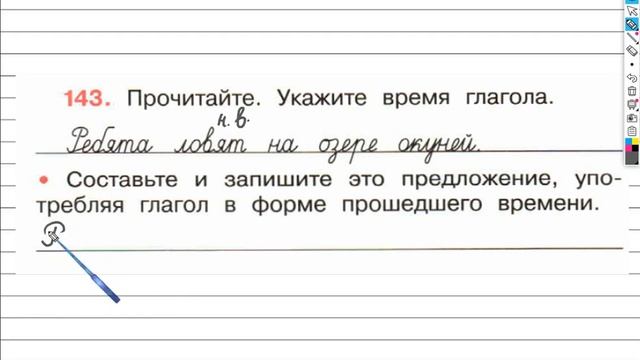 143. Прочитайте. Укажите время глагола.
н.в.
Ребята ловят на озере окуней.
• Составьте и запишите это предложение, упо-
требляя глагол в форме прошедшего времени.
Р